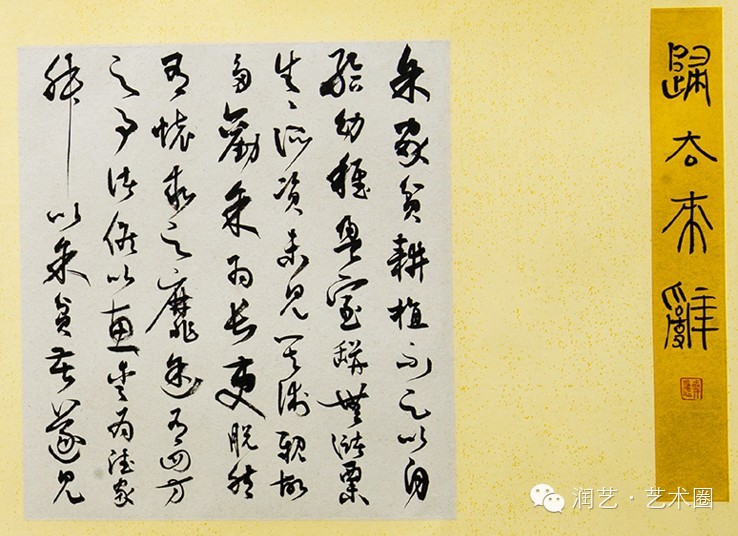 歸去來辭
余家貧耕植不足以自
給幼稚盈室缾無儲粟
生〻所資未見其術親故
多勸余為長吏脫然
有懷求之靡途有四方
之事諸侯以惠愛為德家
叔以余貧苦遂見
润艺·艺术圈